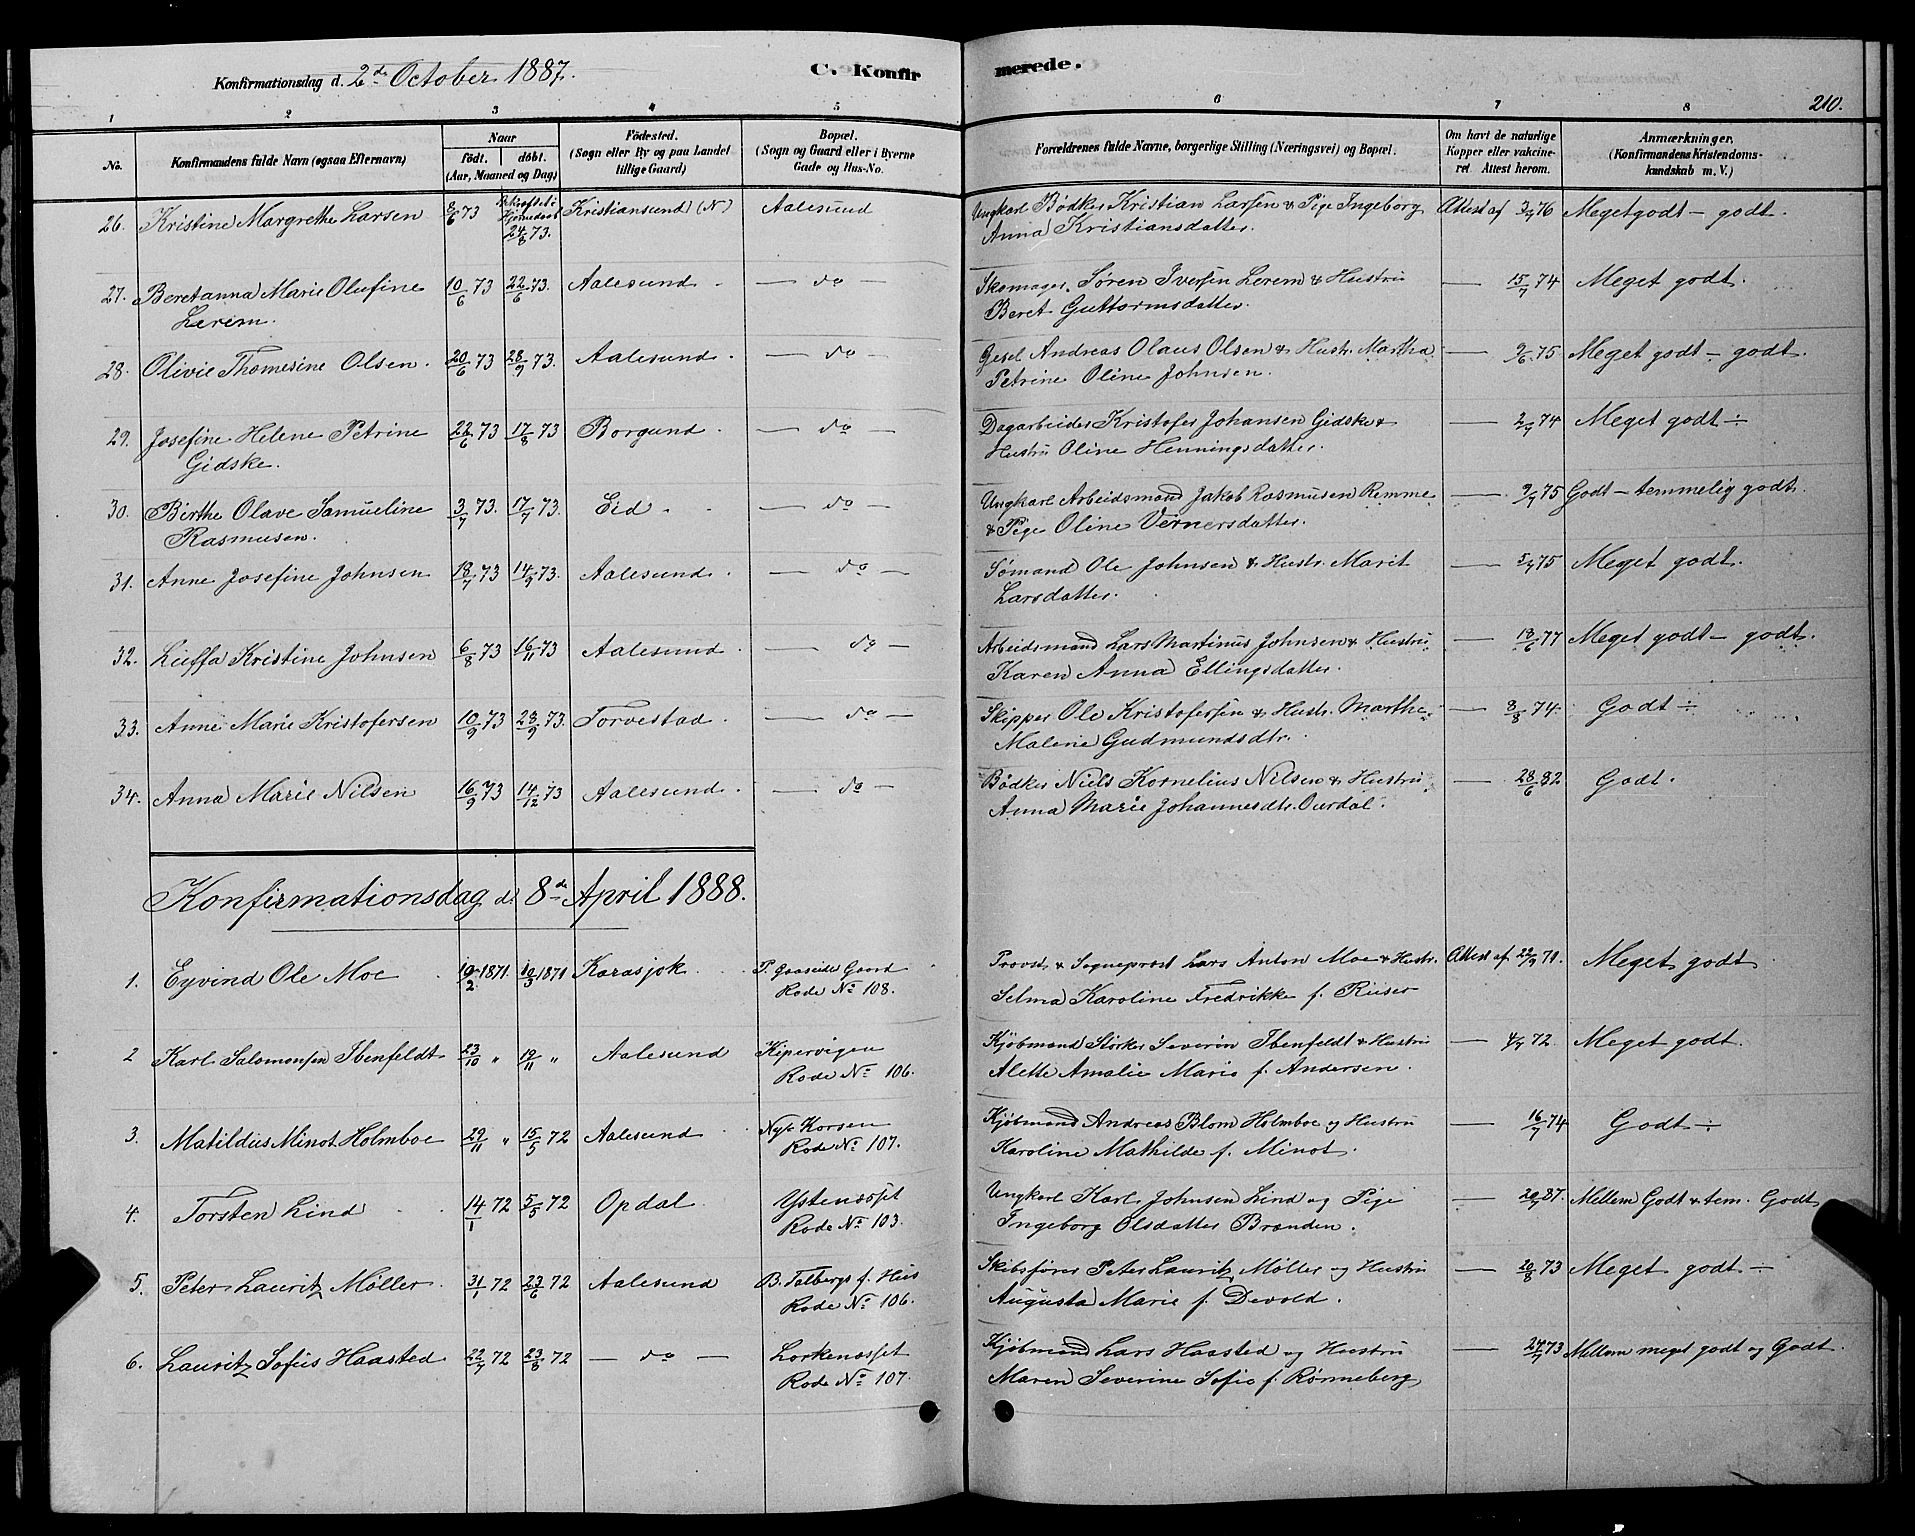 Konfirmationsdag d. 2de October 1887. C. Konfirmerede. 210.
1 2 3 4 5 6 7 8
No. Konfirmandens fulde Navn (ogsaa Efternavn) Naar født. døbt. (Aar, Maaned og Dag) Fødested. (Sogn eller By og paa Landet tillige Gaard) Bopæl. (Sogn og Gaard eller i Byerne Gade og Hus-No. Forældrenes fulde Navne, borgerlige Stilling (Næringsvei) og Bopæl. Om havt de naturlige Kopper eller vakcineret. Attest herom. Anmærkninger. (Konfirmandens Kristendomskundskab m. V.)
26. Kristine Margrethe Larsen 8/6 73 24/8 73. Kristiansund (N) Aalesund Ungkarl Bødker Kristian Larsen & Pige Ingeborg Attest af 3/7 76 Meget godt – godt.
Anna Kristiansdatter.
27. Beretanna Marie Olufine 10/6 73 22/6 73. Aalesund – do – Skomager Søren Iversen Lerem & Hustru — 15/7 74 Meget godt.
Lerem. Beret Guttormsdatter.
28. Olivie Thomesine Olsen. 20/6 73 28/9 73. Aalesund. – do – Gesel Andreas Olaus Olsen & Hustr. Martha — 9/6 75 Meget godt – godt.
Petrine Oline Johnsen.
29. Josefine Helene Petrine 22/6 73 17/8 73 Borgund. – do – Dagarbeider Kristofer Johansen Gidske & — 2/7 74 Meget godt ÷
Gidske. Hustru Oline Henningsdatter.
30. Birthe Olave Samueline 3/7 73. 17/7 73. Eid. – do – Ungkarl Arbeidsmand Jakob Rasmusen Remme — 9/7 75 Godt – temmelig godt.
Rasmusen. & Pige Oline Vernersdatter.
31. Anne Josefine Johnsen 18/7 73 14/9 73. Aalesund. – do – Sømand Ole Johnsen & Hustr. Marit — 5/7 75 Meget godt.
Larsdatter.
32. Lieffa Kristine Johnsen 6/8 73 16/11 73 Aalesund. – do – Arbeidsmand Lars Martinus Johnsen & Hustru — 18/6 77 Meget godt – godt.
Karen Anna Ellingsdatter.
33. Anne Marie Kristofersen 10/9 73 28/9 73. Torvestad. – do – Skipper Ole Kristofersen & Hustr. Marthe — 8/8 74. Godt ÷
Malene Gudmundsdtr.
34. Anna Marie Nilsen 16/9 73 14/12 73 Aalesund. – do – Bødker Niels Kornelius Nilsen & Hustru — 28/6 82 Godt.
Anna Marie Johannesdtr. Ourdal.
Konfirmationsdag d. 8de April 1888.
1. Eyvind Ole Moe 10/2 1871. 19/3 1871 Karasjok P. Gaaseide Gaard Provst & Sogneprest Lars Anton Moe & Hustr. Attest af 22/9 71. Meget godt
Rode No 108. Selma Karoline Fredrikke f. Riiser
2 Karl Salomonsen Ibenfeldt 23/10 " 19/11 " Aalesund Kipervigen Kjøbmand Størker Severin Ibenfeldt & Hustru — 4/7 72. Meget godt.
Rode No 106. Alette Amalie Marie f. Andersen.
3. Matildus Minot Holmboe 29/11 " 15/5 72 Aalesund Nyse Korsen Kjøbmand Andreas Blom Holmboe og Hustru — 16/7 74 Godt ÷
Rode No 107. Karoline Mathilde f. Minot.
4. Torsten Lind 14/1 72 5/5 72 Opdal. Ystenæsset Ungkarl Karl Johnsen Lind og Pige — 20/7 87. Mellem Godt & tem. Godt
Rode No 103. Ingeborg Olsdatter Brænden.
5. Peter Lauritz Møller 31/1 72 23/6 72 Aalesund B. Talbergs f. Hus Skibsfører Peter Lauritz Møller og Hustru — 20/8 73 Meget godt ÷
Rode No 106. Augusta Marie f. Devold.
6. Lauritz Sofus Haasted. 22/7 72 23/8 72 – do – Lorkenæsset Kjøbmand Lars Haasted og Hustru — 24/7 73 Mellem meget godt og Godt.
Rode No 107. Maren Severine Sofie f. Rønneberg